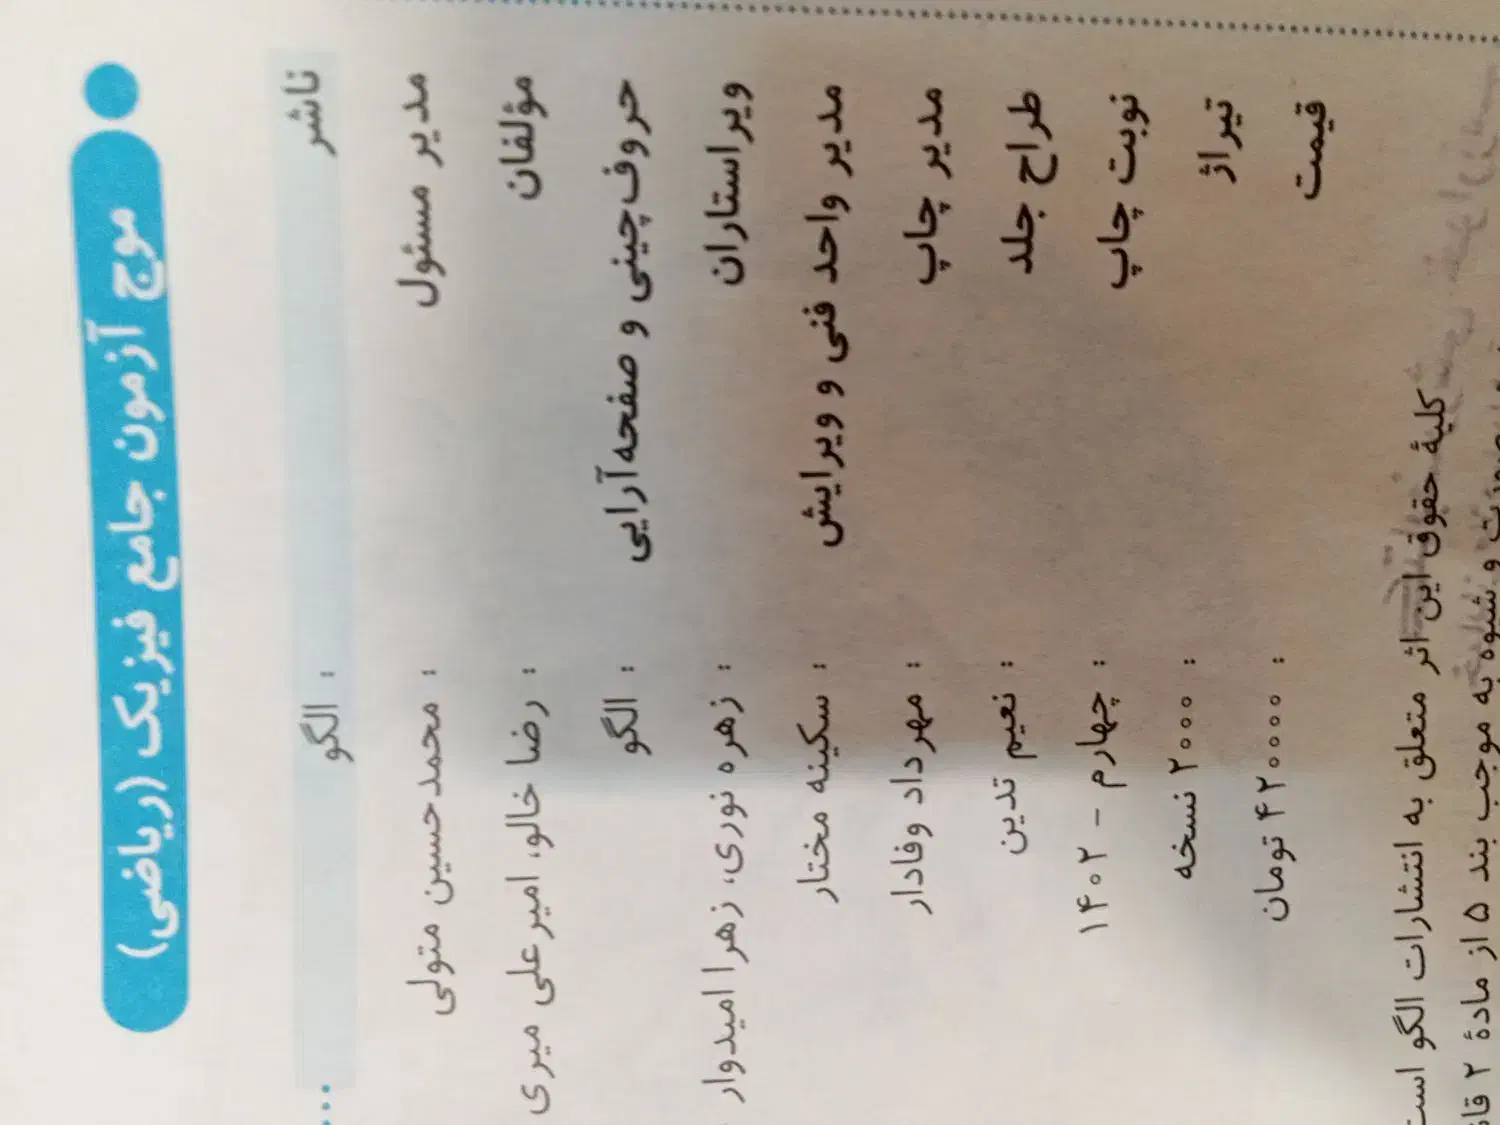 موج آزمون جامع فیزیک (ریاضی)
ناشر : الگو
مدیر مسئول : محمدحسین متولی
مؤلفان : رضا خالو، امیرعلی میری
حروف‌چینی و صفحه‌آرایی : الگو
ویراستاران : زهره نوری، زهرا امیدوار
مدیر واحد فنی و ویرایش : سکینه مختار
مدیر چاپ : مهرداد وفادار
طراح جلد : نعیم تدین
نوبت چاپ : چهارم - ۱۴۰۲
تیراژ : ۲۰۰۰ نسخه
قیمت : ۴۲۰۰۰۰ تومان
کلیهٔ حقوق این اثر متعلق به انتشارات الگو است
و شیوه به موجب بند ۵ از مادهٔ ۲